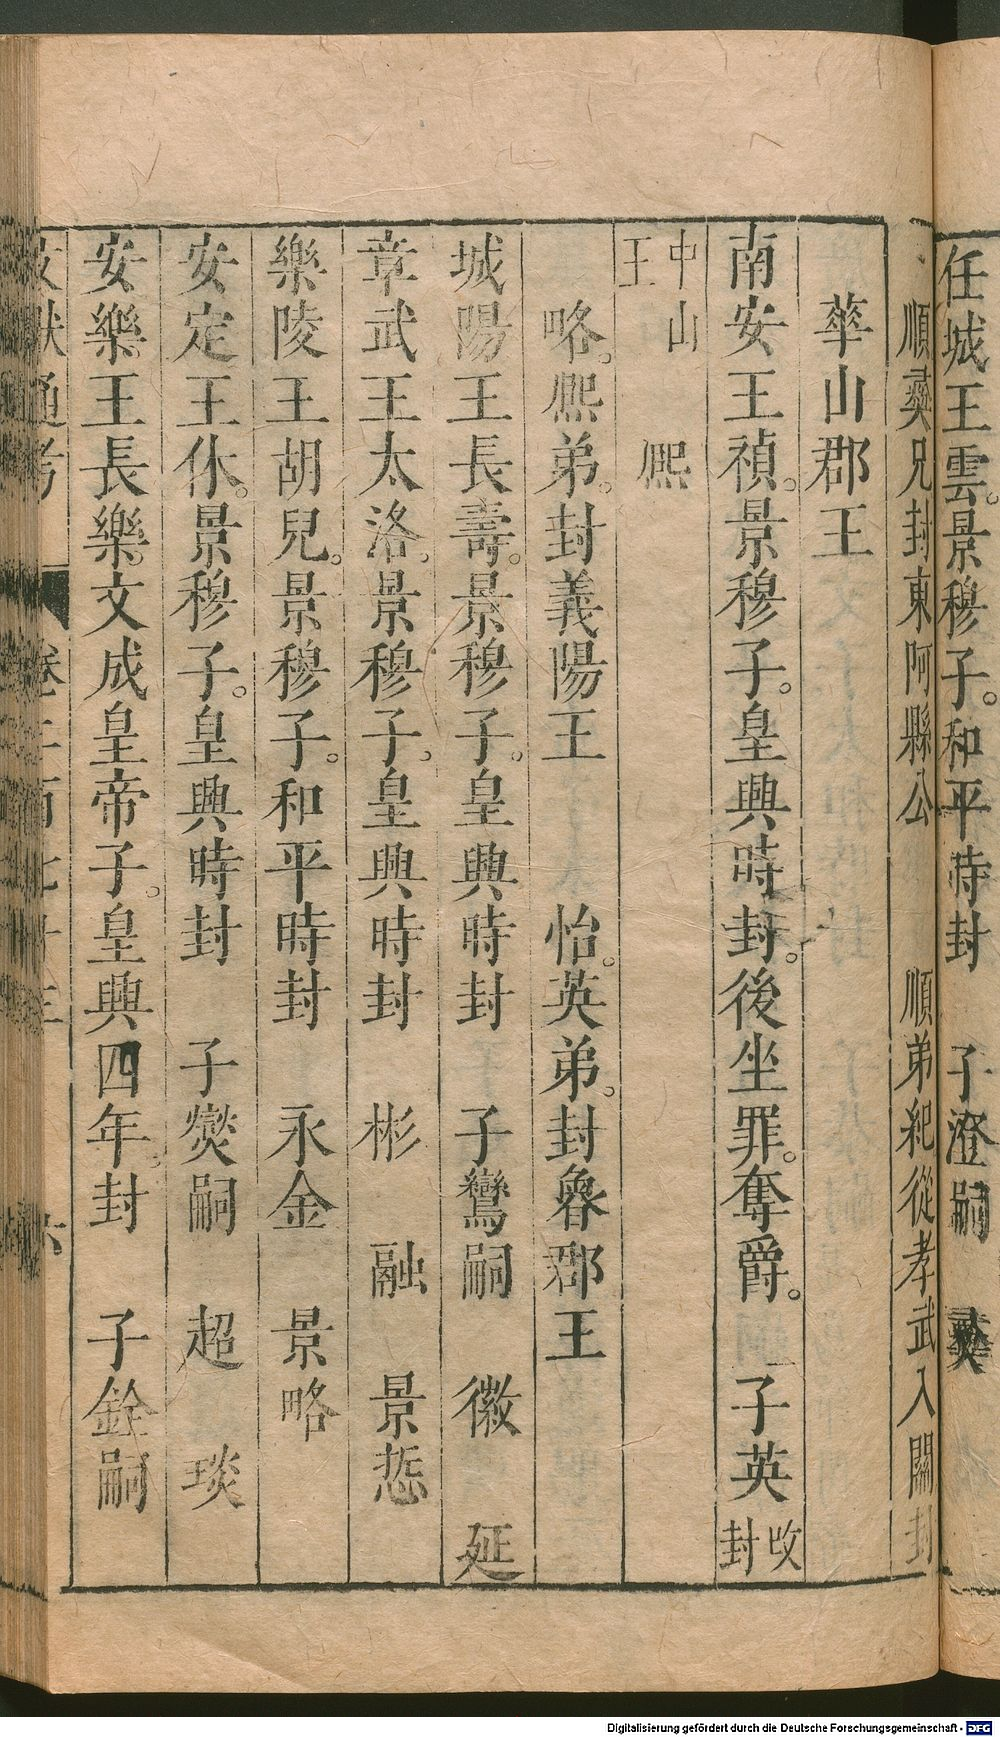 任城王雲。景穆子。和平時封　子澄嗣　彝
順彝兄封東阿縣公　順弟紀從孝武入關封
華山郡王
南安王禎。景穆子。皇興時封。後坐罪。奪爵。　子英改封
中山王　熙
略。熙弟。封義陽王　怡。英弟。封魯郡王
城陽王長壽。景穆子。皇興時封　子鸞嗣　徽　延
章武王太洛。景穆子。皇興時封　彬　融　景悊
樂陵王胡兒。景穆子。和平時封　永金　景略
安定王休。景穆子。皇興時封　子燮嗣　超　琰
安樂王長樂。文成皇帝子。皇興四年。封　子銓嗣
Digitalisierung gefördert durch die Deutsche Forschungsgemeinschaft - DFG